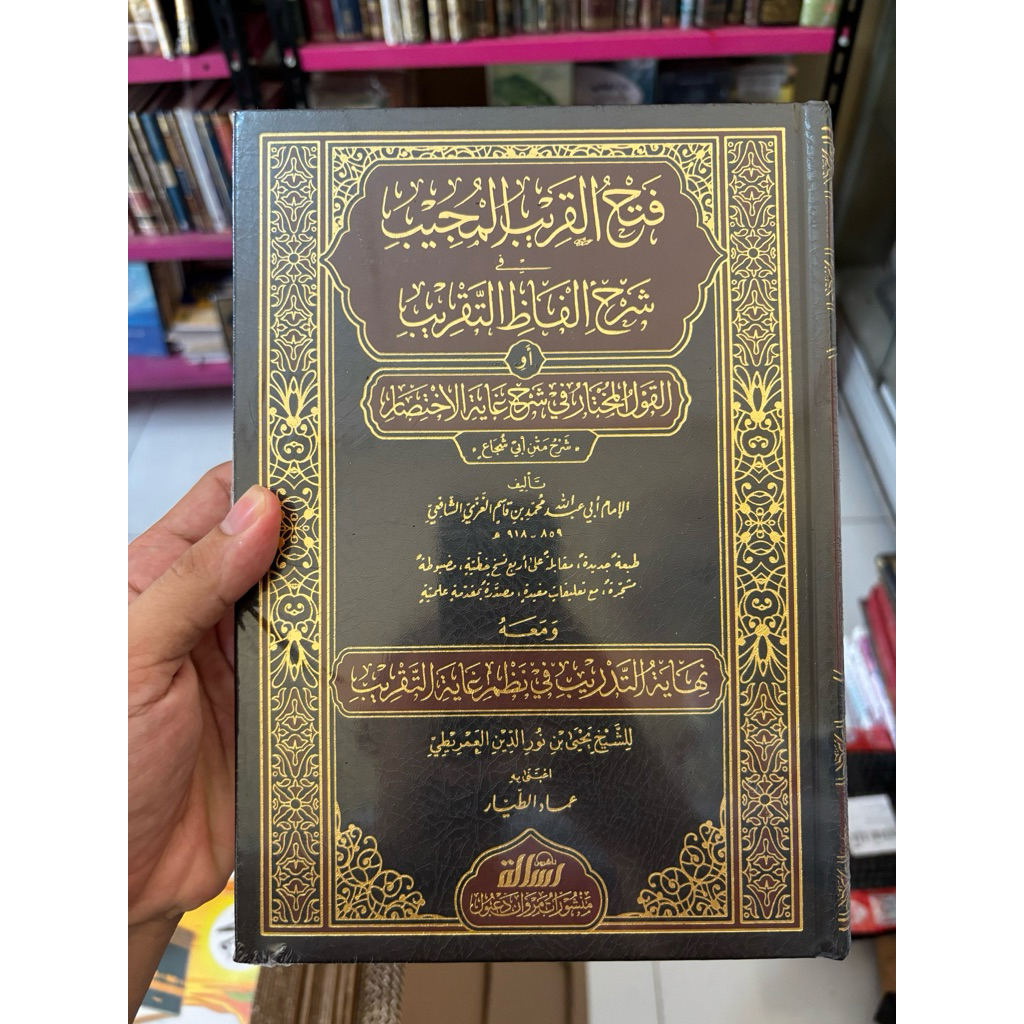 فَتْحُ الْقَرِيْبِ الْمُجِيْبِ
في
شَرْحِ أَلْفَاظِ التَّقْرِيْبِ
أو
الْقَوْلُ الْمُخْتَارُ فِي شَرْحِ غَايَةِ الْاخْتِصَارِ
شَرْحُ مَتْنِ أَبِي شُجَاعٍ
تَأليف
الإمام أبي عبد الله محمد بن قاسم الغَزّي الشافعي
٨٥٩ - ٩١٨ هـ
طبعةٌ جديدةٌ، مقابلةٌ على أربع نسخٍ خطّيّةٍ، مضبوطةٌ
مشجّرةٌ، مع تعليقاتٍ مفيدةٍ، مصدّرةٌ بمقدّمةٍ علميّةٍ
وَمَعَهُ
نِهَايَةُ التَّدْرِيْبِ فِي نَظْمِ غَايَةِ التَّقْرِيْبِ
لِلشَّيْخِ يَحْيَى بْنِ نُورِ الدِّينِ الْعِمْرِيطِيِّ
اعتنى به
عماد الطيّار
ناشرون
رسالة
منشورات مروان دعبول